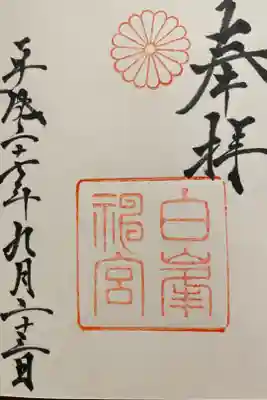 奉拝
白峯
神宮
平成二十七年九月二十三日